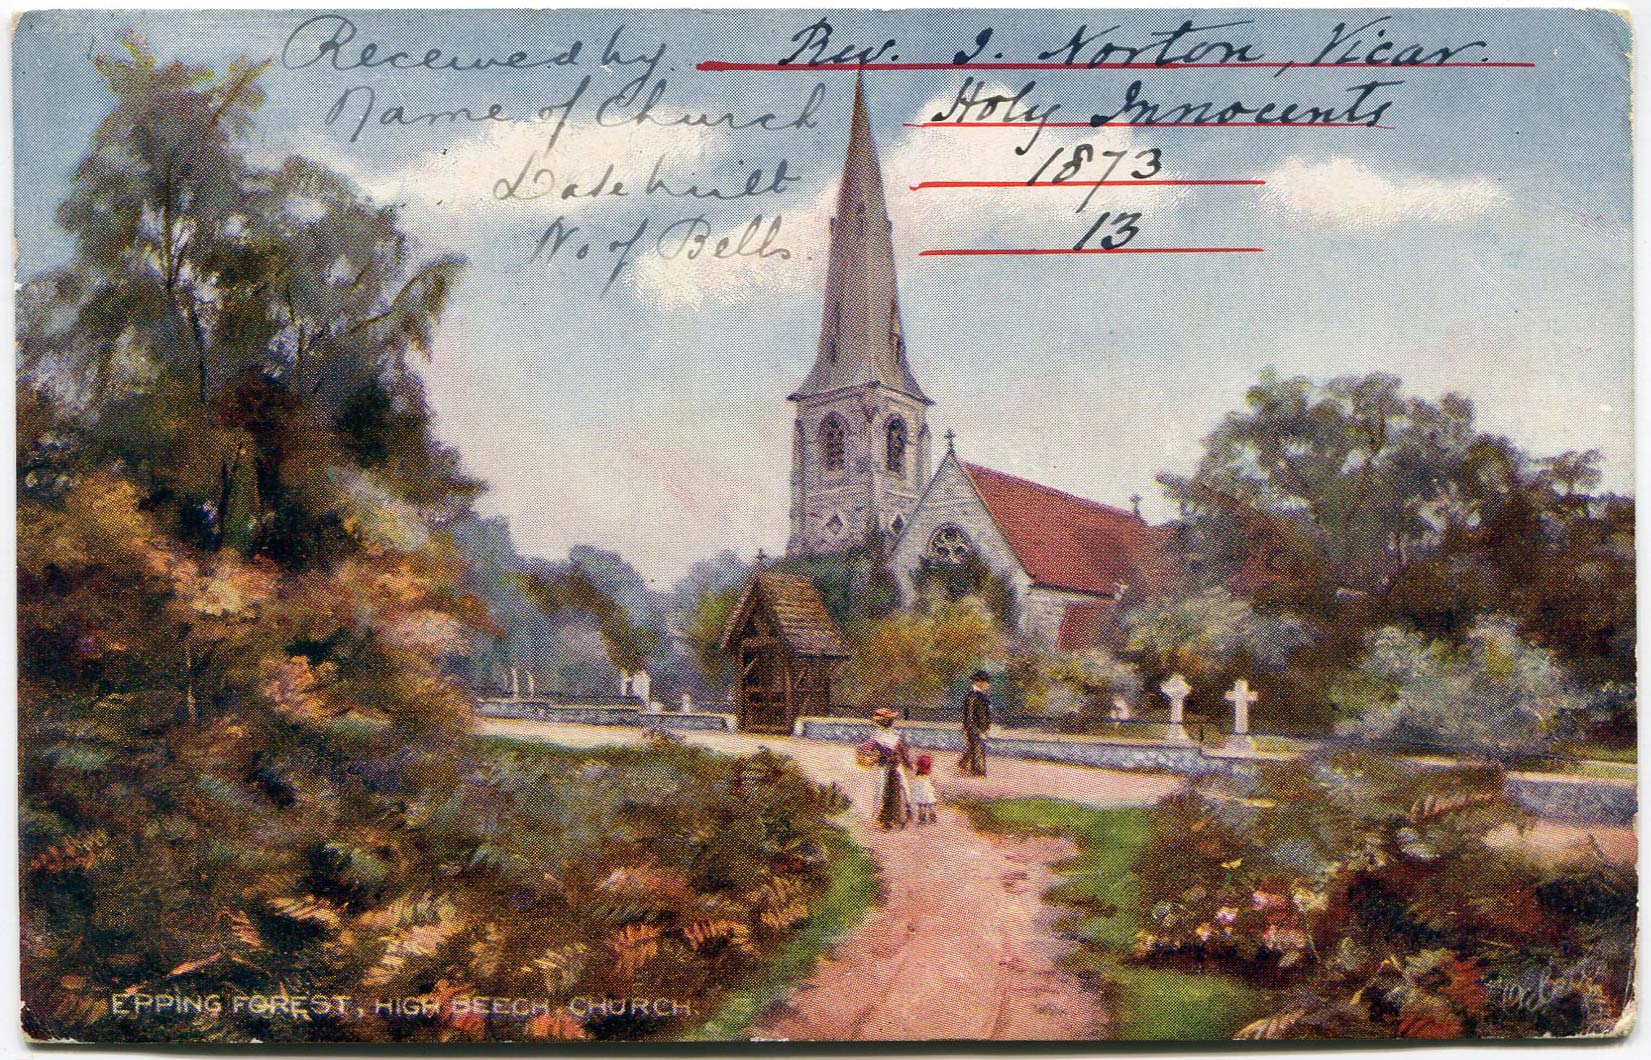 Received by Rev. I. Norton, Vicar.
Name of Church Holy Innocents
Date built 1873
No of Bells. 13
EPPING FOREST, HIGH BEECH CHURCH.